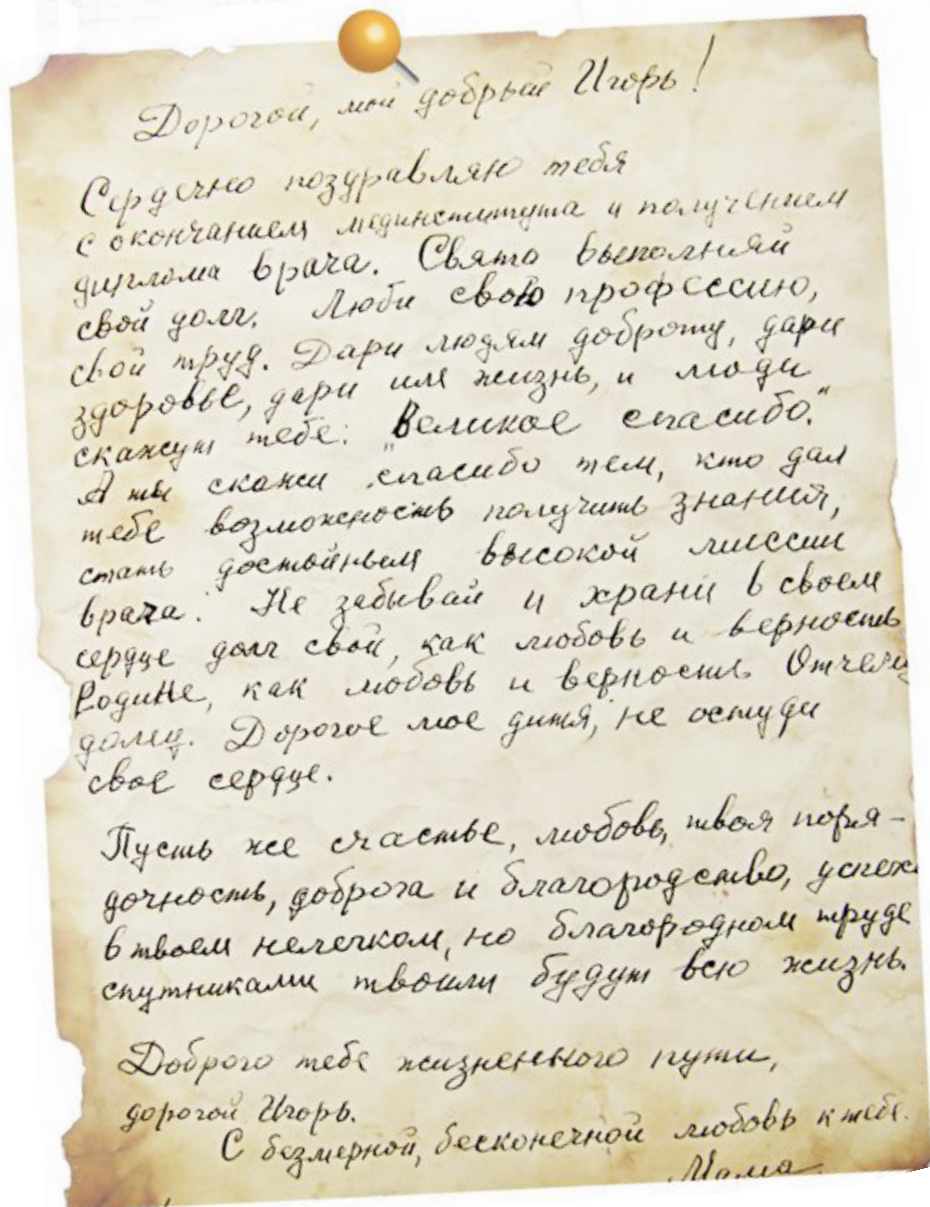 Дорогой, мой добрый Игорь!
Сердечно поздравляю тебя
с окончанием мединститута и получением
диплома врача. Свято выполняй
свой долг. Люби свою профессию,
свой труд. Дари людям доброту, дари
здоровье, дари им жизнь, и люди
скажут тебе: "Великое спасибо."
А ты скажи "спасибо тем, кто дал
тебе возможность получить знания,
стать достойным высокой миссии
врача." Не забывай и храни в своем
сердце долг свой, как любовь и верность
Родине, как любовь и верность Отчему
дому. Дорогое мое дитя, не остуди
свое сердце.
Пусть же счастье, любовь, твоя поря-
дочность, доброта и благородство, успех
в твоем нелегком, но благородном труде
спутниками твоими будут всю жизнь.
Доброго тебе жизненного пути,
дорогой Игорь.
С безмерной, бесконечной любовь к тебе.
Мама